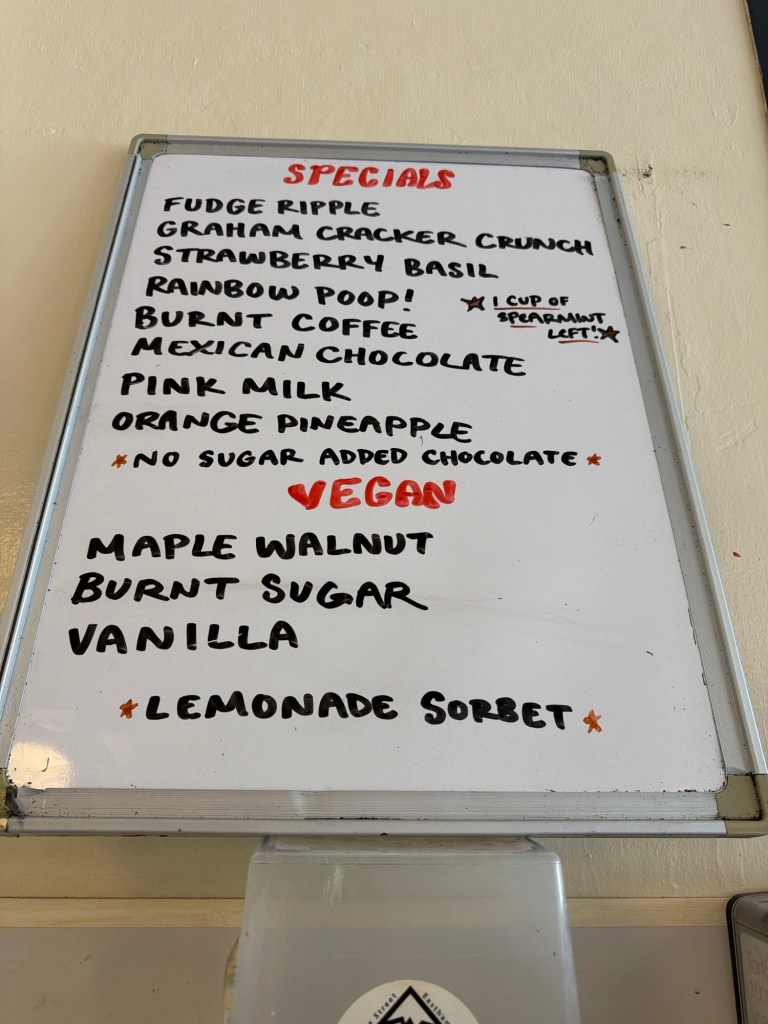 SPECIALS
FUDGE RIPPLE
GRAHAM CRACKER CRUNCH
STRAWBERRY BASIL
RAINBOW POOP!
★ 1 CUP OF
SPEARMINT
LEFT! ★
BURNT COFFEE
MEXICAN CHOCOLATE
PINK MILK
ORANGE PINEAPPLE
★ NO SUGAR ADDED CHOCOLATE ★
VEGAN
MAPLE WALNUT
BURNT SUGAR
VANILLA
★ LEMONADE SORBET ★
Street